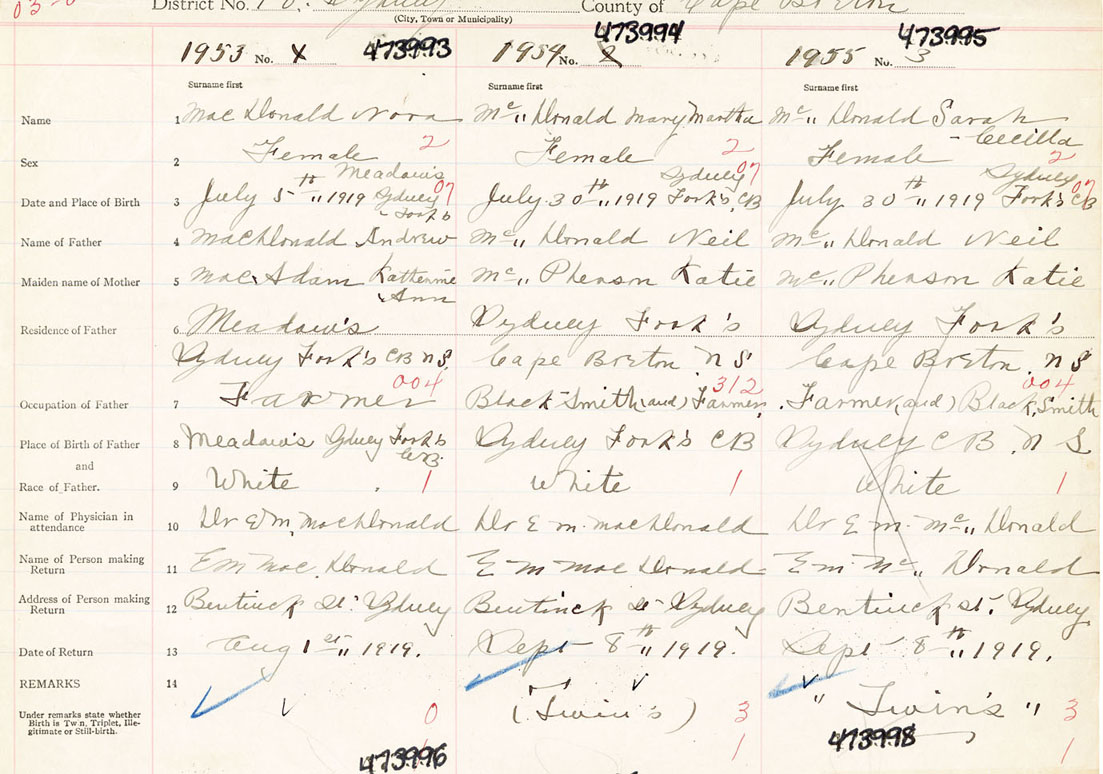 District No. Sydney County of Cape Breton
(City, Town or Municipality)
1953 No. X 473993 1954 No. 473994 1955 No. 3 473995
Surname first Surname first Surname first
Name 1 Mac Donald Nora Mc „ Donald Mary Martha Mc „ Donald Sarah
- Cecilla
Sex 2 Female 2 Female 2 Female 2
Date and Place of Birth 3 July 5th „ 1919 Meadow's Sydney Fork's 07 July 30th „ 1919 Sydney Fork's CB 07 July 30th „ 1919 Sydney Fork's CB 07
Name of Father 4 MacDonald Andrew Mc „ Donald Neil Mc „ Donald Neil
Maiden name of Mother 5 Mac Adam Katherine Ann Mc „ Pherson Katie Mc „ Pherson Katie
Residence of Father 6 Meadow's Sydney Fork's Sydney Fork's
Sydney Fork's CB NS. Cape Breton. N S Cape Breton. N S
004 312 004
Occupation of Father 7 Farmer Black-Smith (and) Farmer. Farmer (and) Black Smith
Place of Birth of Father 8 Meadow's Sydney Fork's CB. Sydney Fork's CB Sydney CB. N S
and
Race of Father. 9 White 1 White 1 White 1
Name of Physician in
attendance 10 Dr E M. MacDonald Dr E M. MacDonald Dr E M. Mc „ Donald
Name of Person making
Return 11 E M Mac Donald E M Mac Donald E M. Mc „ Donald
Address of Person making
Return 12 Bentinck St. Sydney Bentinck St Sydney Bentinck St. Sydney
Date of Return 13 Aug 1st „ 1919. Sept 8th „ 1919. Sept 8th „ 1919.
REMARKS 14
Under remarks state whether
Birth is Twin, Triplet, Ille-
gitimate or Still-birth.
0 (Twin's) 3 " Twin's " 3
1 1
473996 473998